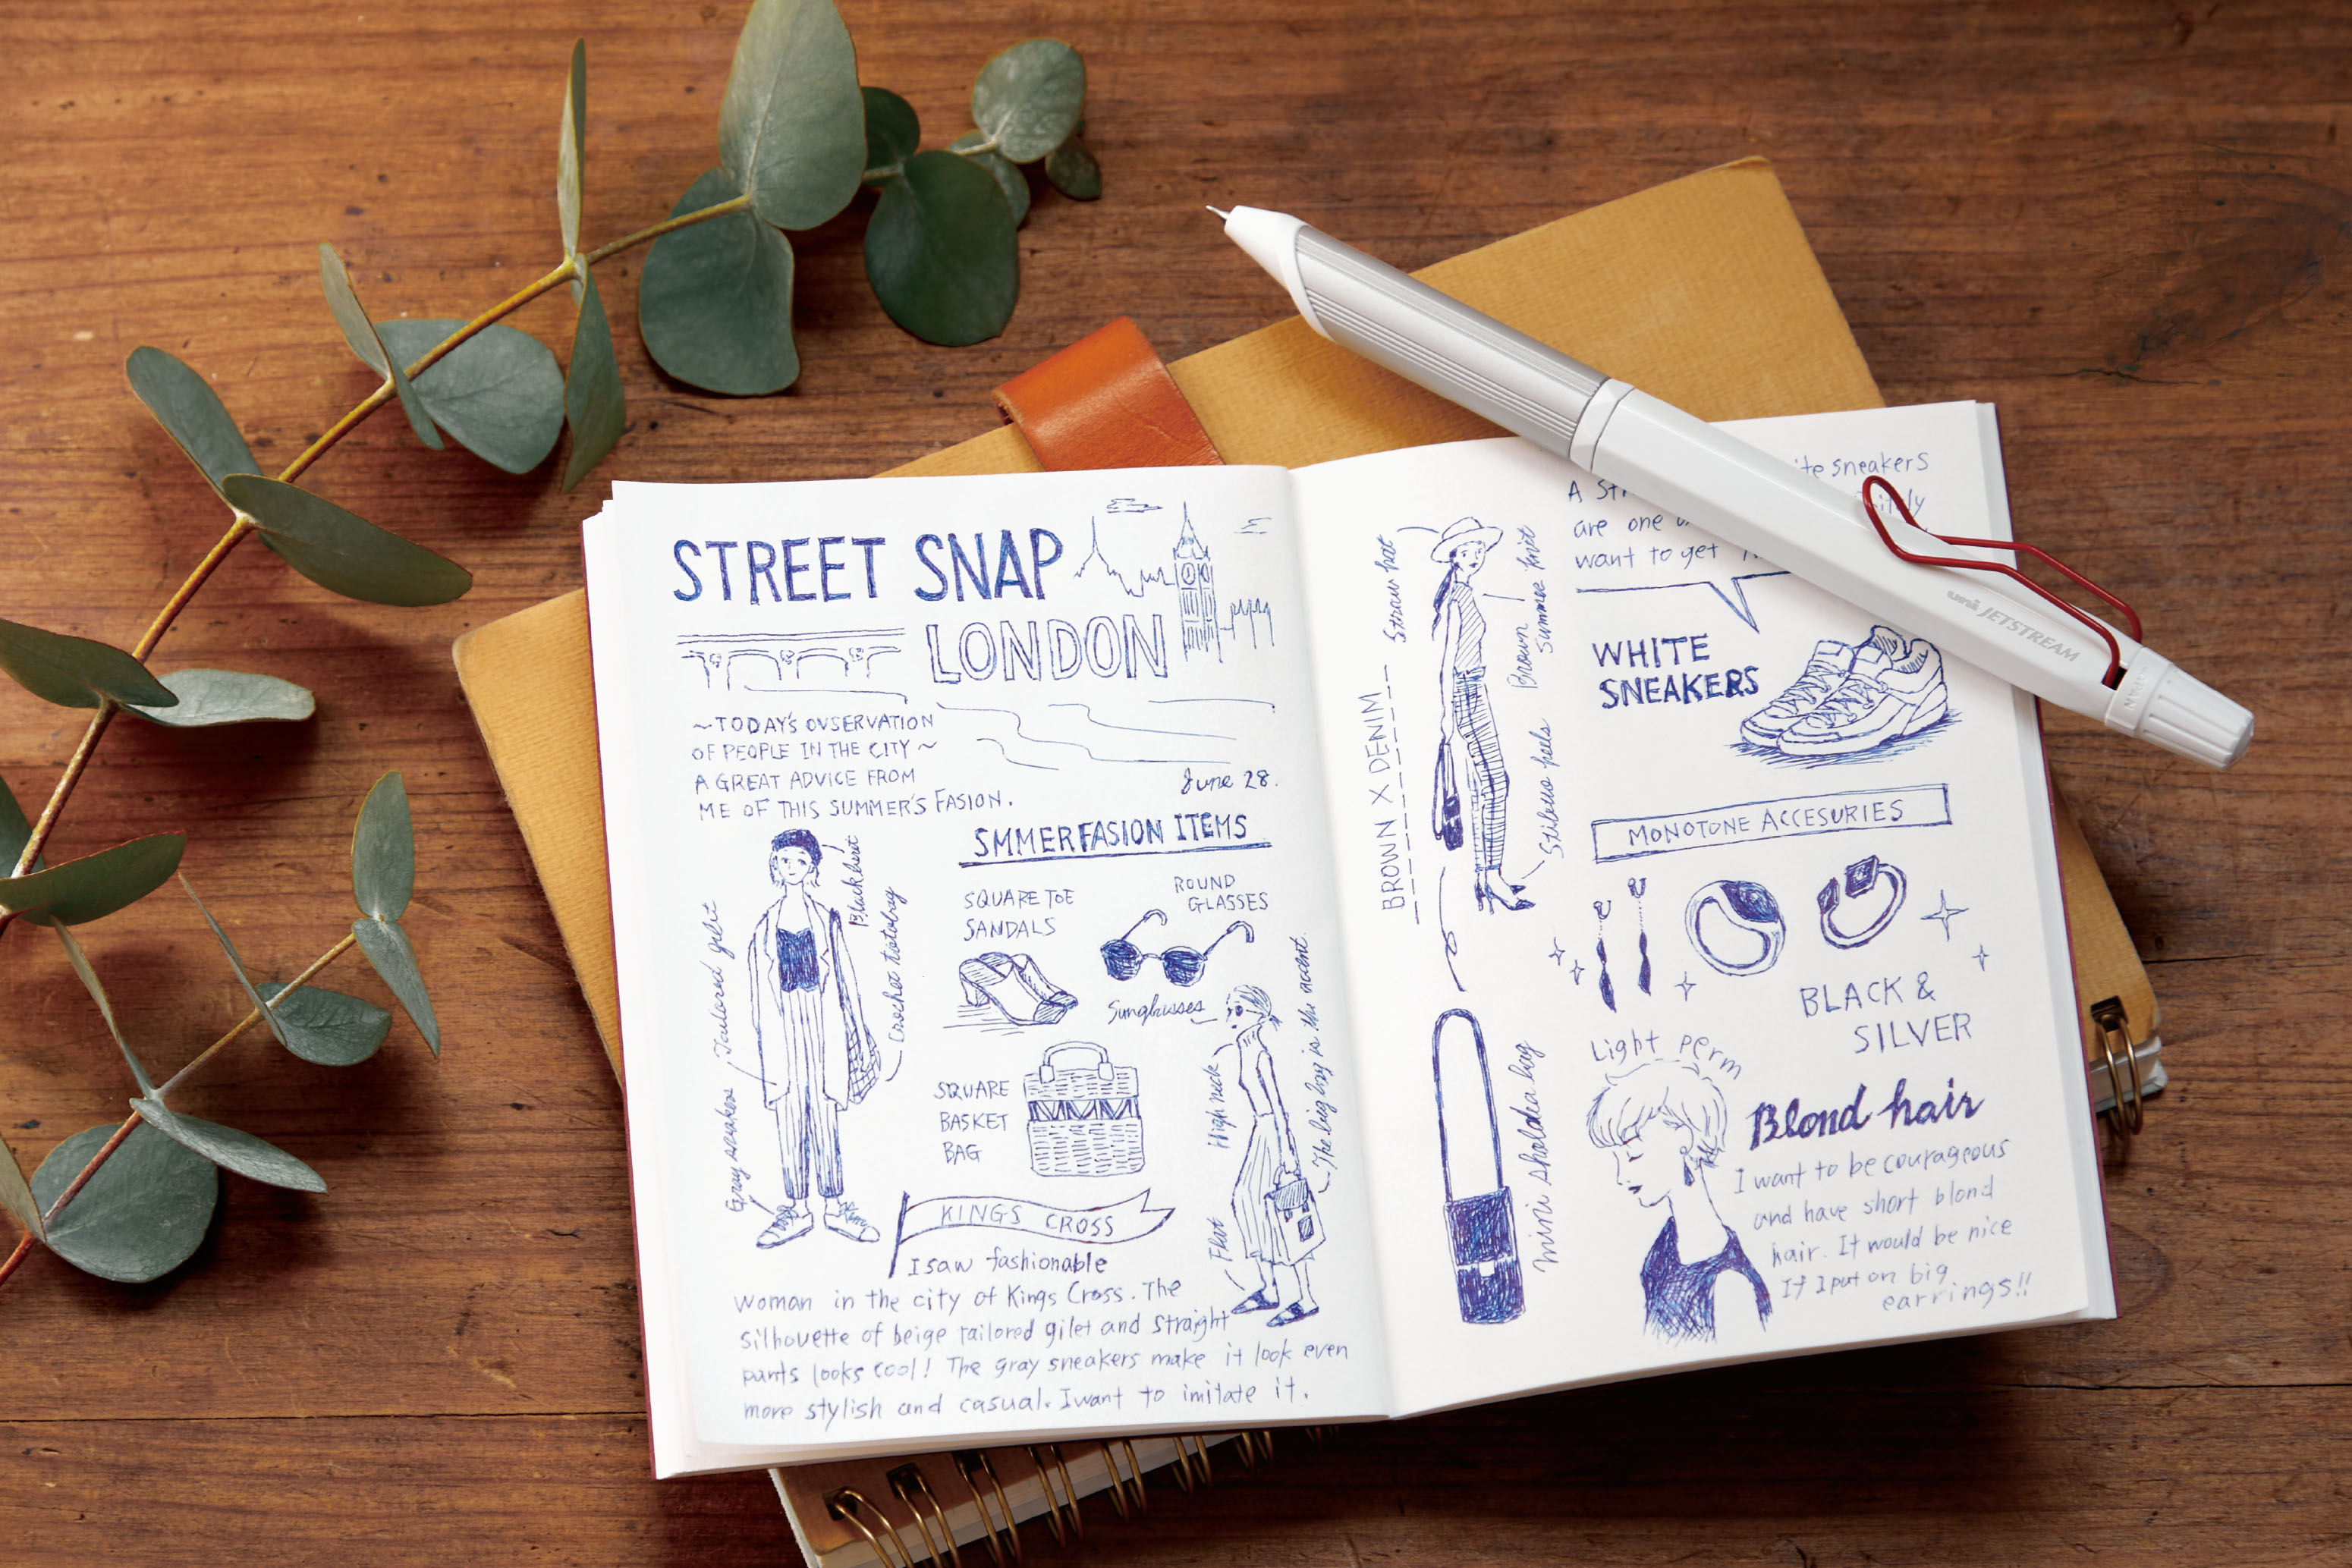 STREET SNAP
LONDON
~TODAY'S OVSERVATION
OF PEOPLE IN THE CITY~
A GREAT ADVICE FROM
ME OF THIS SUMMER'S FASION.
June 28.
Black beret
Crochet totobag
Tailored gilet
Gray sneakers
SMMER FASION ITEMS
SQUARE TOE
SANDALS
ROUND
GLASSES
Sunglasses
SQUARE
BASKET
BAG
High neck
The big bag is the accent.
Flat
KINGS CROSS
I saw fashionable
woman in the city of Kings Cross. The
silhouette of beige tailored gilet and straight
pants looks cool! The gray sneakers make it look even
more stylish and casual. I want to imitate it.
BROWN X DENIM
Straw hat
Brown
Summer knit
Stilleus heels
mini sholdea bag
sneakers
A
are one
want to get
WHITE
SNEAKERS
MONOTONE ACCESURIES
BLACK &
SILVER
Light perm
Blond hair
I want to be courageous
and have short blond
hair. It would be nice
If I put on big
earrings!!
uni JETSTREAM